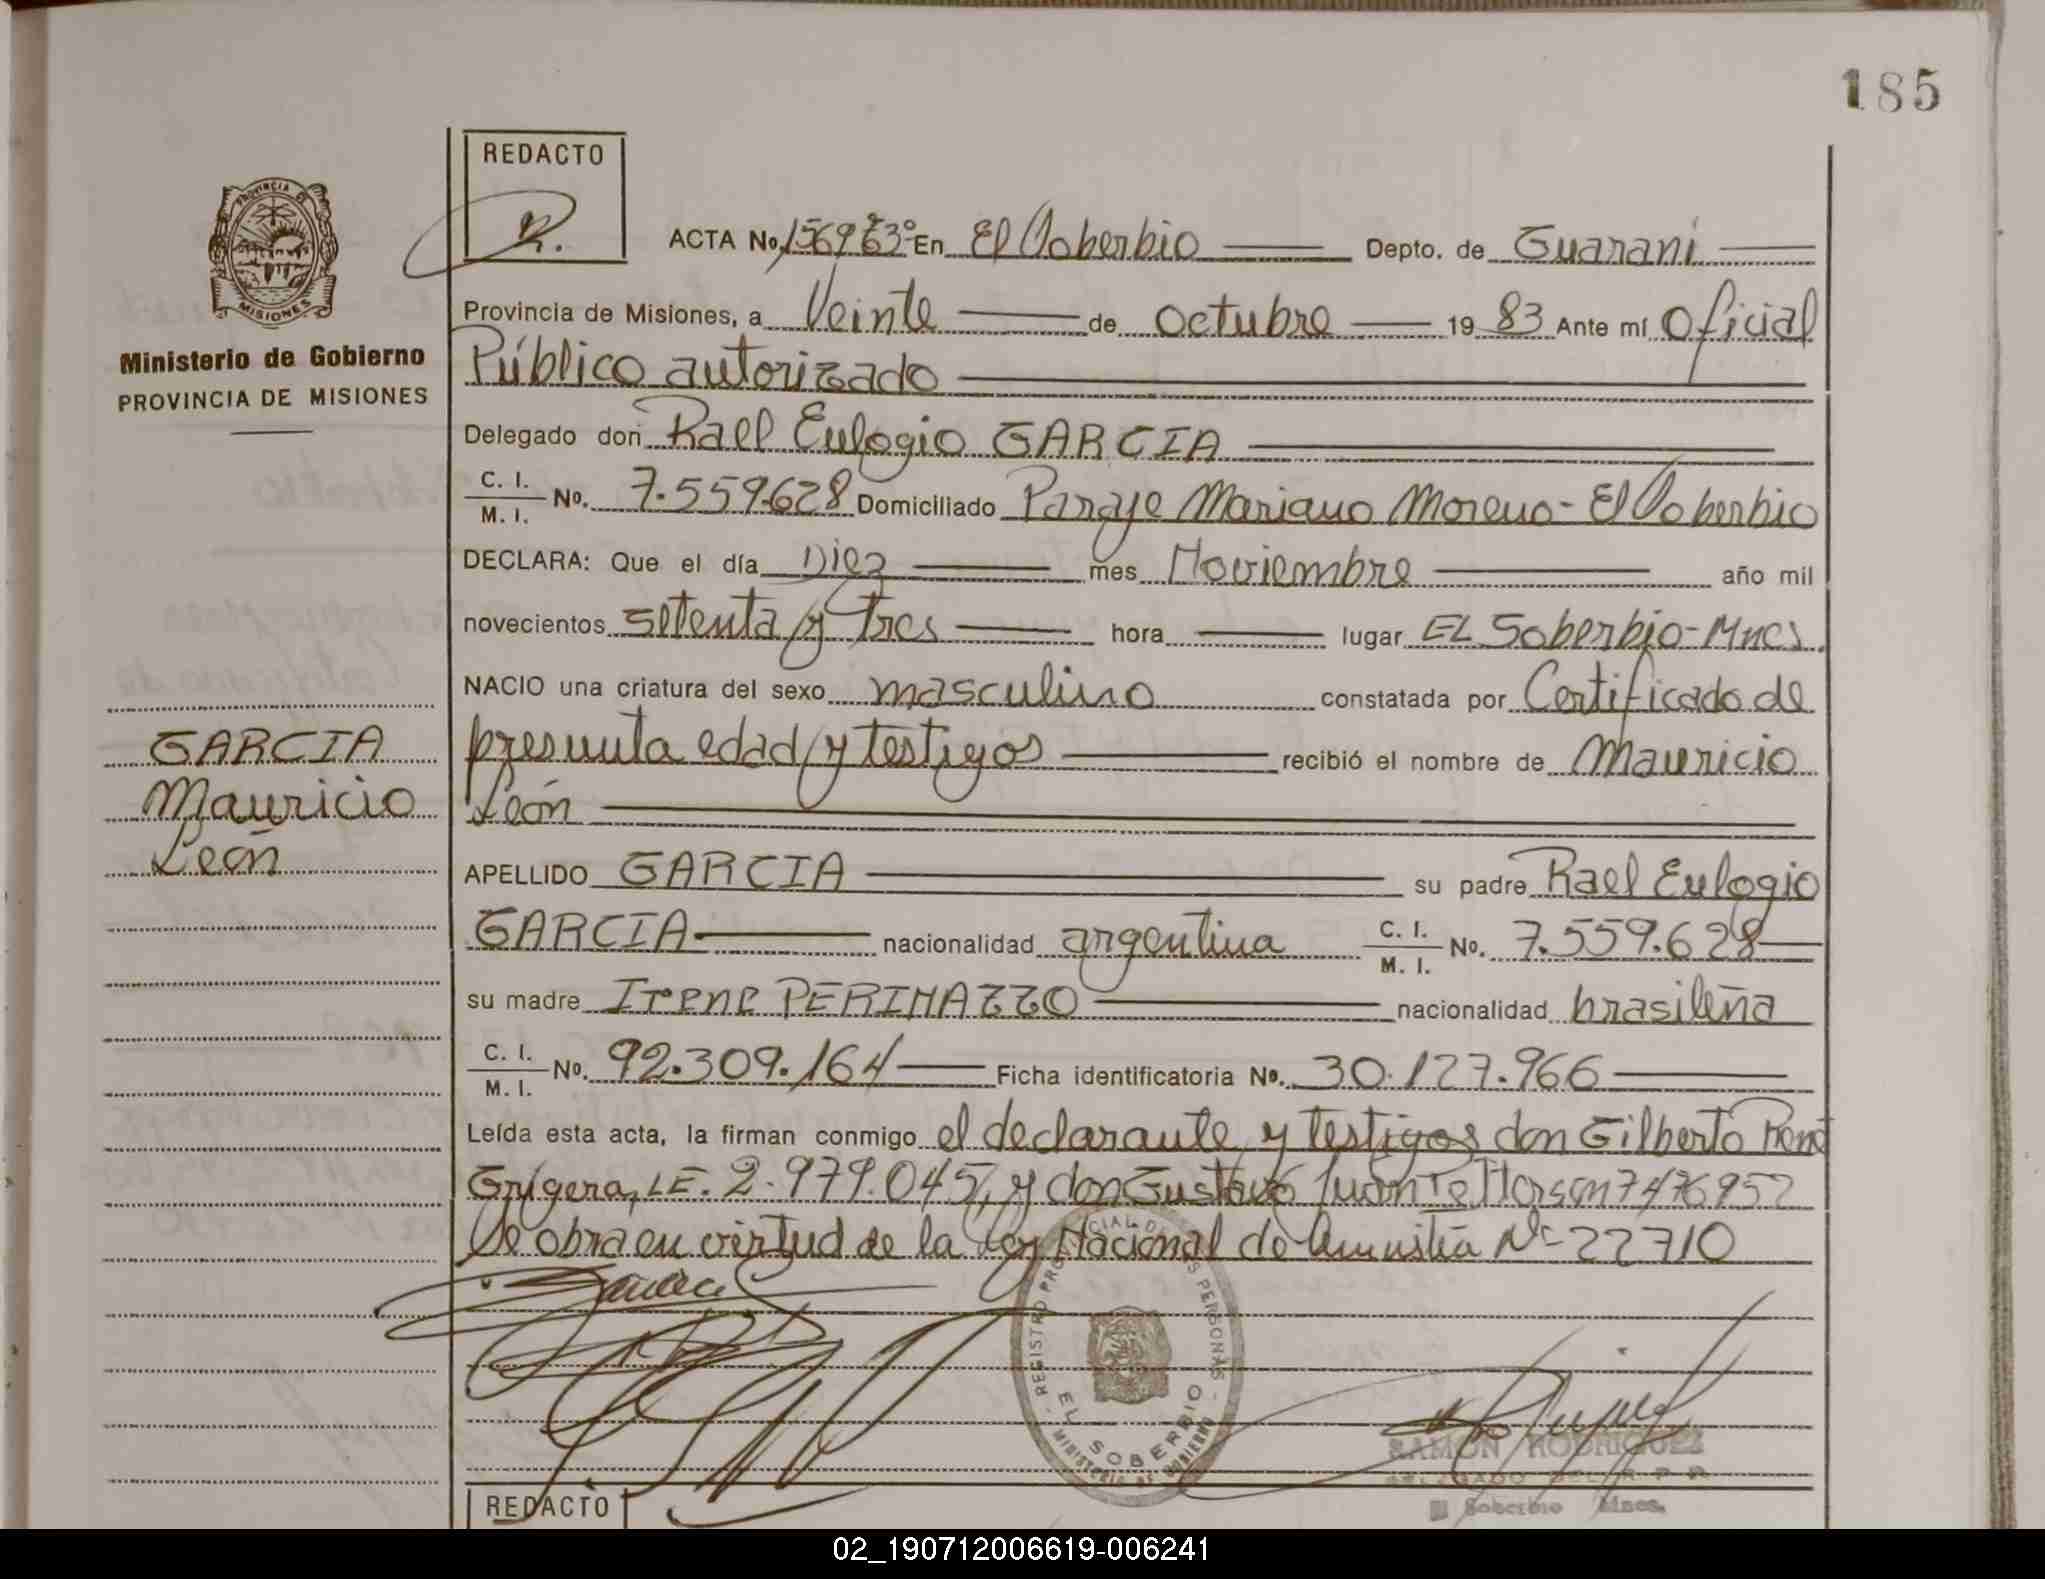 185
REDACTO
R.
PROVINCIA DE
MISIONES
Ministerio de Gobierno
PROVINCIA DE MISIONES
ACTA No. En El Soberbio Depto. de Guaraní
Provincia de Misiones, a Veinte de Octubre 19 83 Ante mí Oficial
Público autorizado
Delegado don Rael Eulogio GARCIA
C. I.
M. I. No. 7.559.628 Domiciliado Paraje Mariano Moreno - El Soberbio
DECLARA: Que el día Diez mes Noviembre año mil
novecientos setenta y tres hora lugar EL Soberbio - Mnes.
NACIO una criatura del sexo masculino constatada por Certificado de
presunta edad y testigos recibió el nombre de Mauricio
León
GARCIA
Mauricio
León
APELLIDO GARCIA su padre Rael Eulogio
GARCIA nacionalidad argentina C. I.
M. I. No. 7.559.628
su madre Irene PERINAZZO nacionalidad brasileña
C. I.
M. I. No. 92.309.164 Ficha identificatoria No. 30.127.966
Leída esta acta, la firman conmigo el declarante y testigos don Gilberto René
Grigera, LE. 2.979.045, y don Gustavo Juan 7476952
Se obra en virtud de la Ley Nacional de Amnistía Nº 22710
REGISTRO PROVINCIAL DE LAS PERSONAS
EL SOBERBIO
MINISTERIO DE GOBIERNO
RAMON RODRIGUEZ
DELEGADO DEL R. P. P.
El Soberbio Mnes.
REDACTO
02_190712006619-006241